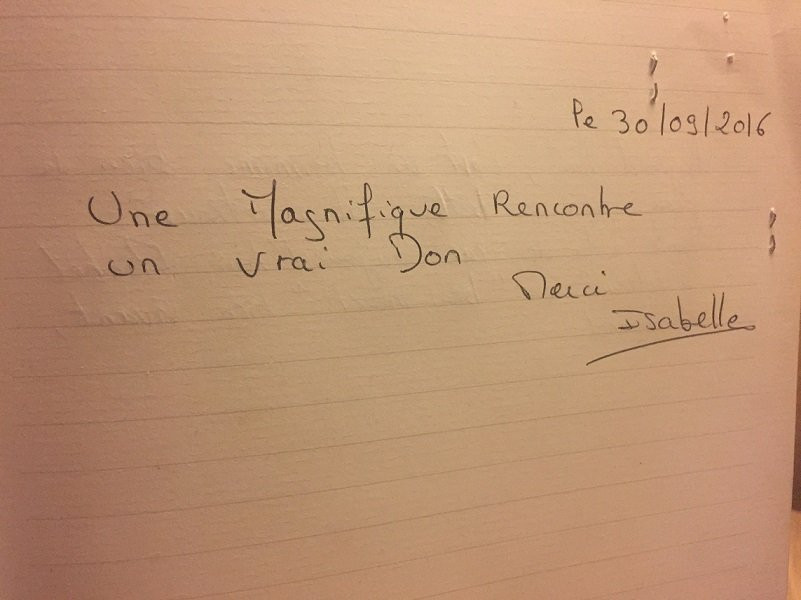 le 30/09/2016
Une Magnifique Rencontre
un vrai Don
Merci
Isabelle